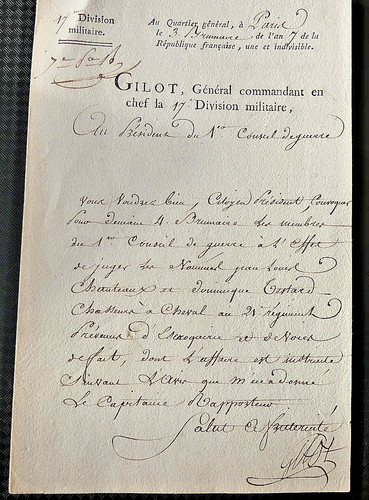 17me Division
militaire.
Au Quartier général, à Paris
le 3 Brumaire de l'an 7 de la
République française, une et indivisible.
GILOT, Général commandant en
chef la 17e Division militaire,
Au Président du 1er Conseil de guerre
Vous Voudrez bien, Citoyen Président, Convoquer
pour demain 4. Brumaire les membres
du 1er Conseil de guerre à l'Effet
de juger les Nommés jean Louis
Chanteaux et dominique Tertard
Chasseurs à Cheval au 2e régiment
Prévenus d'Escroquerie et de Voies
de fait, dont l'affaire est instruite
Suivant l'avis que m'en a donné
Le Capitaine Rapporteur
Salut & fraternité
Gilot